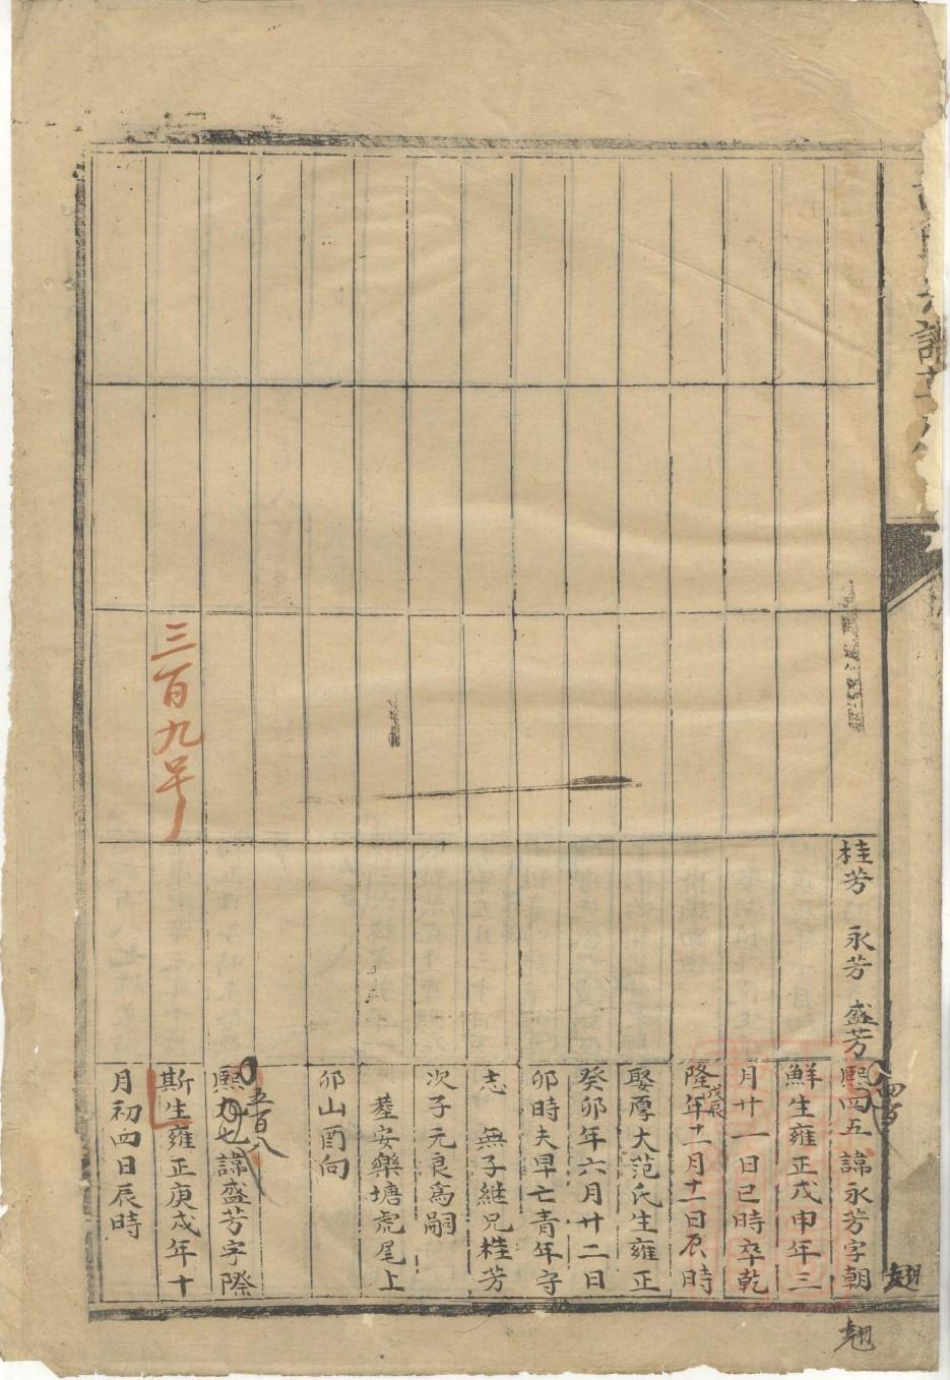 桂芳　永芳　盛芳
熙四五諱永芳字朝
鮮生雍正戊申年三
月廿一日巳時卒乾
隆戊辰年十一月十一日辰時
娶厚大范氏生雍正
癸卯年六月廿二日
卯時夫早亡青年守
志　無子継兄桂芳
次子元良為嗣
塟安樂塘虎尾上
卯山酉向
五百八
熙九七諱盛芳字際
斯生雍正庚戌年十
月初四日辰時
三百九号
翹
翹